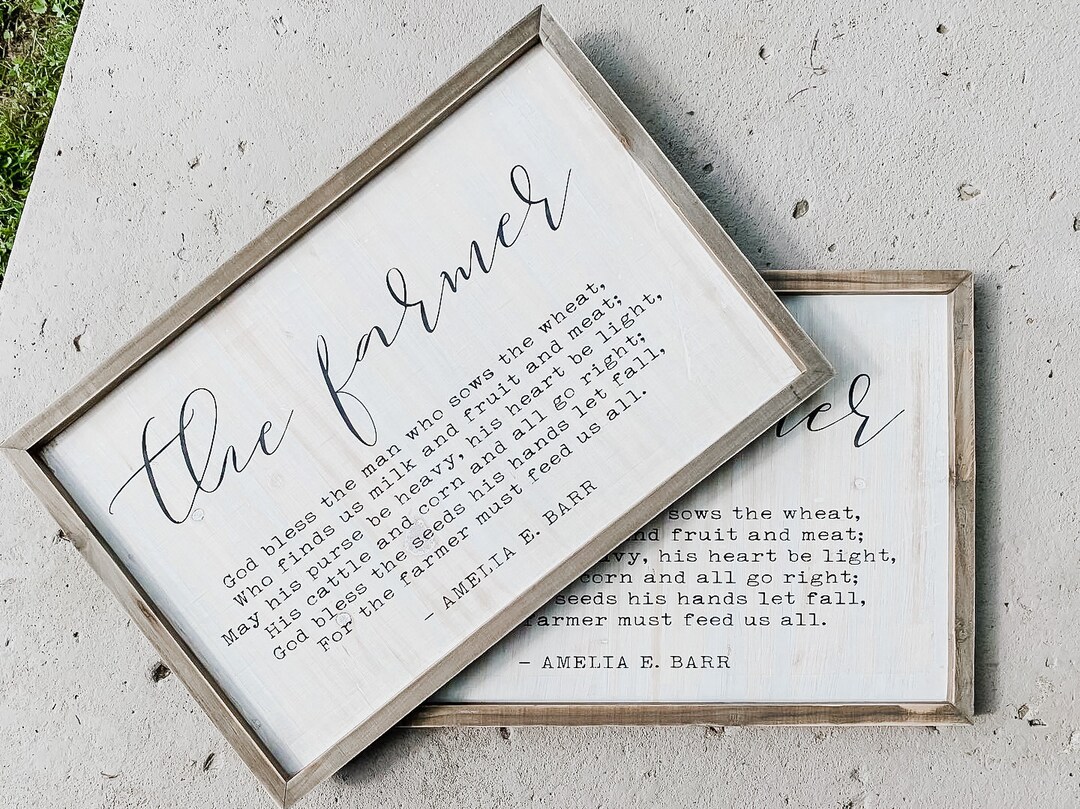 the farmer
God bless the man who sows the wheat,
Who finds us milk and fruit and meat;
May his purse be heavy, his heart be light,
His cattle and corn and all go right;
God bless the seeds his hands let fall,
For the farmer must feed us all.
- AMELIA E. BARR
er
sows the wheat,
fruit and meat;
his heart be light,
corn and all go right;
seeds his hands let fall,
farmer must feed us all.
- AMELIA E. BARR